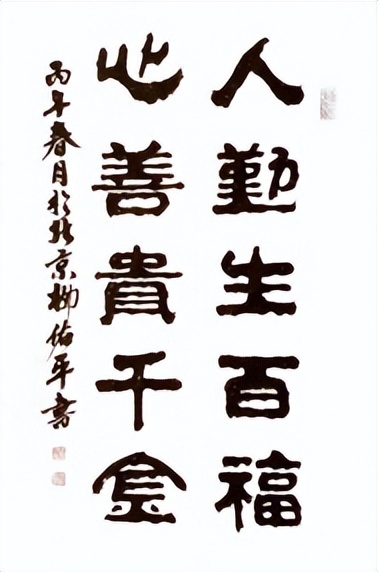 人勤生百福
心善貴千金
丙午春月於北京柳佑平書